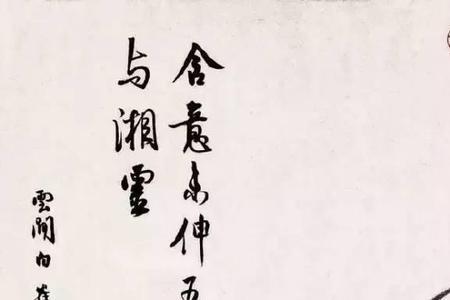 含意未伸五
与湘靈
雲間白